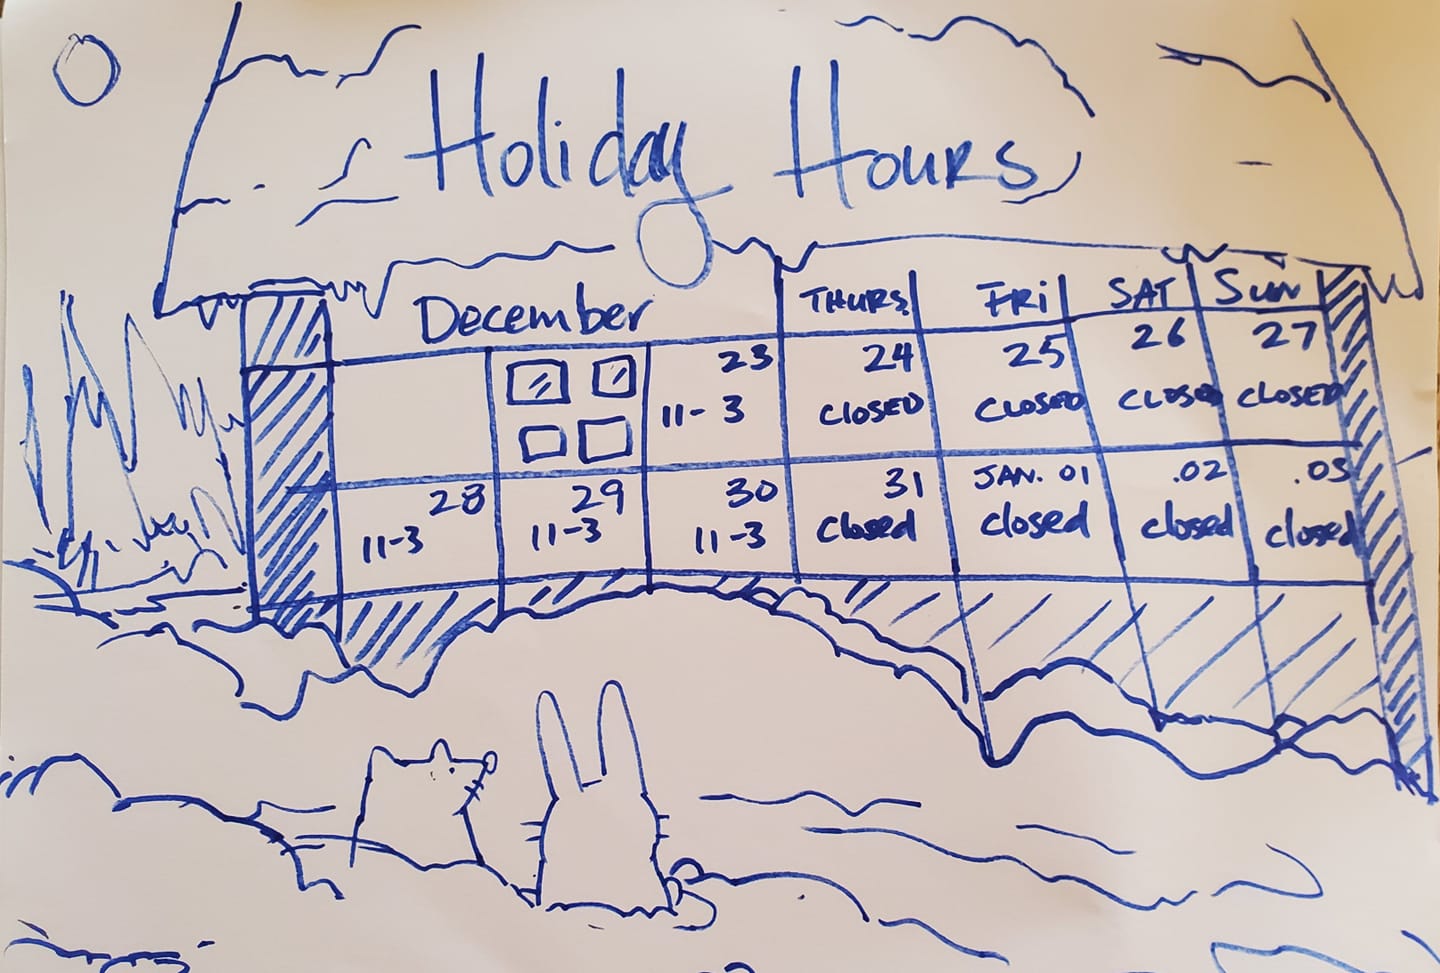 Holiday Hours
December THURS. FRI SAT SUN
23 24 25 26 27
11-3 CLOSED CLOSED CLOSED CLOSED
28 29 30 31 JAN. 01 .02 .03
11-3 11-3 11-3 closed closed closed closed